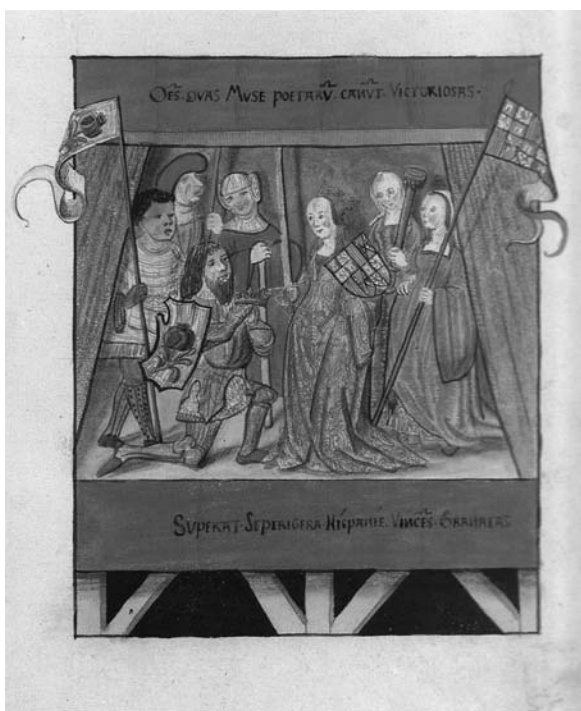 OES · QUAS MUSE POETARU · CANUT · VICTURIOSAS ·
SUPERAT · SEPERIGERA · HISPANIE · VINCES · GRANATAS